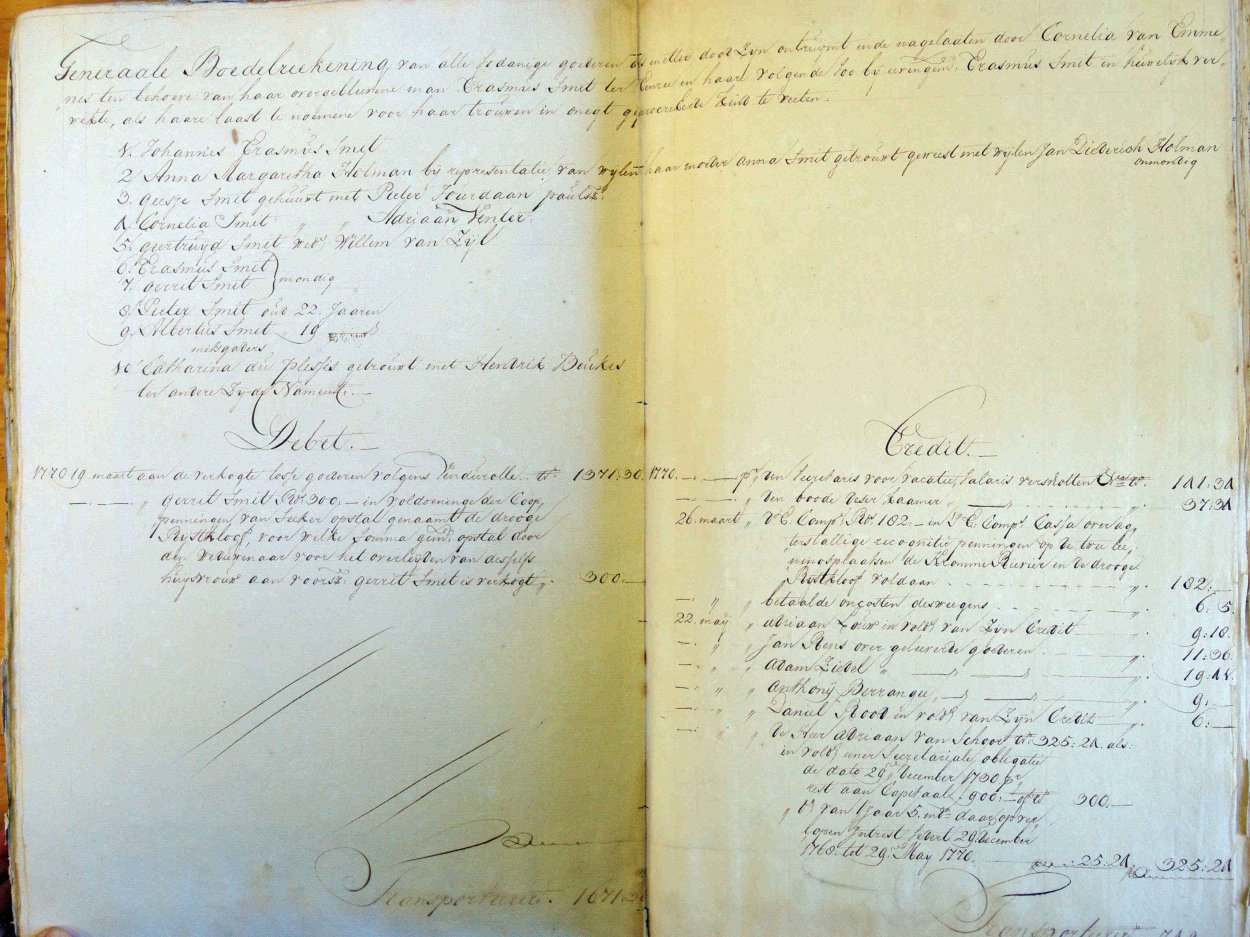 Generaale Boedelreekening van alle sodanige goederen als met ter dood zyn ontruymt ende nagelaaten door Cornelia van Emme„
nis ten behoeve van haar overgebleevene man Erasmus Smit ter Eenre en haar volgende soo bij evengem: Erasmus Smit in huwelyk ver„
wekte, als haare laast te noemene voor haar trouwen in onegt geprocreëerde kind te weeten.
1. Johannes Erasmus Smit
2. Anna Margaretha Holman bij representatie van wylen haar moeder anna Smit getrouwt geweest met wylen Jan Diederich Holman
onmondig
3. geesje Smit gehuuwt met Pieter Jourdaan paulsz:
4. Cornelia Smit „ „ Adriaan Venter.
5. geertruyd Smit wed: Willem van Zyl
6. Erasmus Smit
7. gerrit Smit } mondig
8. Pieter Smit oud 22. Jaaren
9. Albertus Smit „ 19
mitsgaders
10. Catharina du plessis getrouwt met Hendrik Beukes
ter andere Zyde Namentl: —
Debet. —
1770 19 maart aan de verkogte losse goederen volgens Vendurolle 1371:30.
„ gerrit Smit Rds 300:— in voldoeninge der Coop„
penningen van Seeker opstal genaamt de drooge
Rystkloof, voor welke Somma gem: opstal door
den weduwnaar voor het overlyden van desselfs
huysvrouw aan voorsz: gerrit Smit is verkogt „ 300:—
Transporteere. 1671:30
Credit. —
1770. — pr den Secretaris voor vacatie, Salaris verschotten 141:34
„ den boode deser kaamer 37:34
26. maart „ d'E. Comp: Rds 182.— in d'E. Comp: Cassa over ag„
terstallige recognitie penningen op de twe lee„
ningsplaatsen de Kromme Rivier en de drooge
Rystkloof voldaan „ 182:—
„ „ betaalde oncosten desweegens „ 6:5.
22. may „ Adriaan Louw in vold: van Zyn Credit „ 9:18.
„ „ Jan Rens over geleeverde goederen „ 11:36
„ „ Adam Ziebel „ 19:
„ „ Anthonij Berrangee „ 9:—
„ „ Daniel Root in vold: van Zyn Credit „ 6:—
„ „ de Heer Adriaan van Schoor 325:24. als:
in vold: eener Secretariale obligatie
de dato 29 December 1730 pr
rest aan Capitaal 900:— 300:—
„ van 1 Jaar 5. mds daar op ver„
lopen Intrest sedert 29 December
1768: tot 29 May 1770. 25:24. 325:24
Transporteere